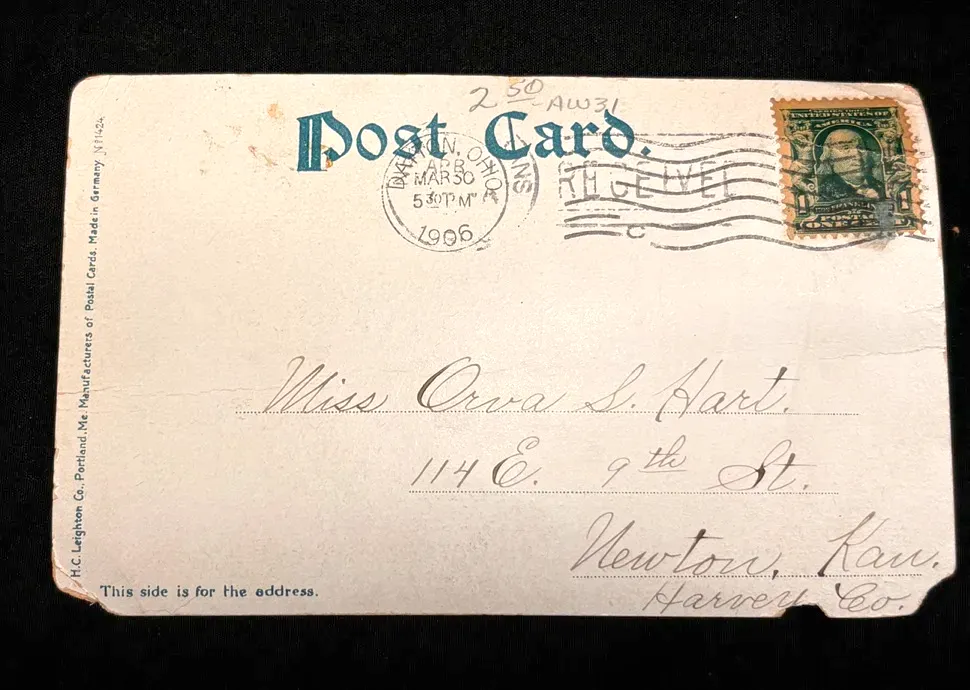 2 50 AW31
Post Card.
DAYTON, OHIO
KANS
APR
MAR 30
5 30 P M
1906
RECEIVED
UNITED STATES OF
AMERICA
1 1
POSTAGE
ONE
H.C. Leighton Co., Portland, Me. Manufacturers of Postal Cards. Made in Germany Nº 1424.
Miss Orva S. Hart.
114 E. 9th St.
Newton, Kan.
Harvey Co.
This side is for the address.